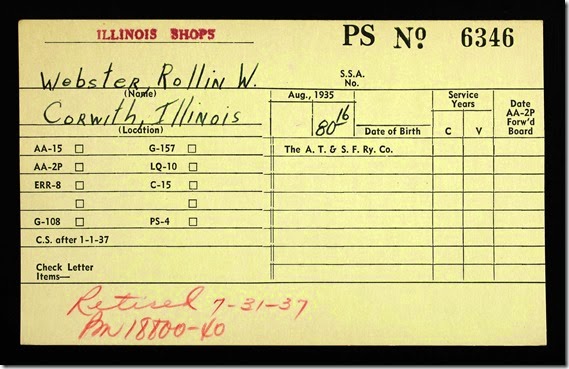 ILLINOIS SHOPS
PS Nº 6346
Webster, Rollin W.
(Name)
S.S.A. No.
Corwith, Illinois
(Location)
Aug., 1935
80 16
Date of Birth
Service Years
C V
Date AA-2P Forw'd Board
AA-15 G-157
The A. T. & S. F. Ry. Co.
AA-2P LQ-10
ERR-8 C-15
G-108 PS-4
C.S. after 1-1-37
Check Letter
Items—
Retired 7-31-37
Bn 18800-40